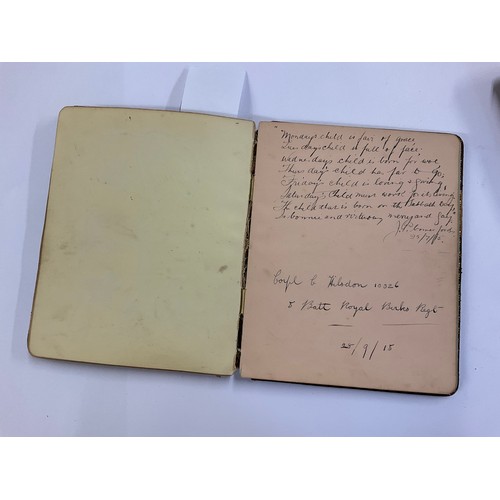 Mondays child is fair of grace
Tuesdays child is full of fair
Wednesdays child is born for woe
Thursdays child has far to go,
Fridays child is loving & giving,
Saturdays child must work for a living
The child that is born on the Sabbath day
Is bonnie and winsome merry and gay
Corpl C Hilsdon 10326
8 Batt Royal Berks Regt
25/9/15